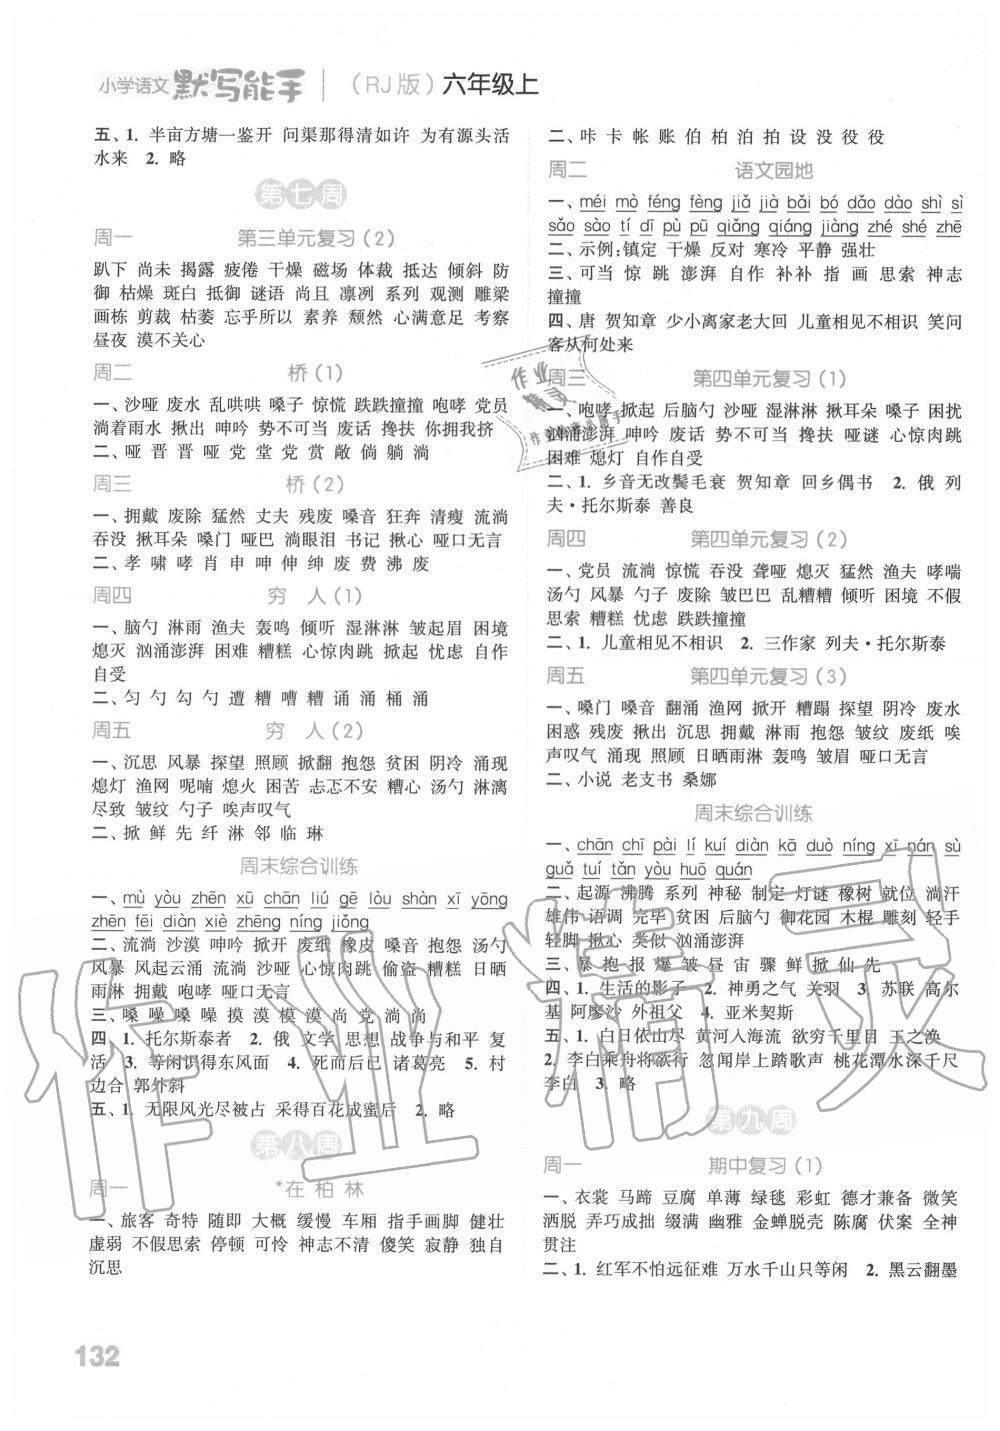 小学语文 默写能手 （RJ版）六年级上
五、1. 半亩方塘一鉴开 问渠那得清如许 为有源头活
水来 2. 略
第七周
周一 第三单元复习(2)
趴下 尚未 揭露 疲倦 干燥 磁场 体裁 抵达 倾斜 防
御 枯燥 斑白 抵御 谜语 尚且 凛冽 系列 观测 雕梁
画栋 剪裁 枯萎 忘乎所以 素养 颓然 心满意足 考察
昼夜 漠不关心
周二 桥(1)
一、沙哑 废水 乱哄哄 嗓子 惊慌 跌跌撞撞 咆哮 党员
淌着雨水 揪出 呻吟 势不可当 废话 搀扶 你拥我挤
二、哑 晋 晋 哑 党 堂 党 赏 敞 倘 躺 淌
周三 桥(2)
一、拥戴 废除 猛然 丈夫 残废 嗓音 狂奔 清瘦 流淌
吞没 揪耳朵 嗓门 哑巴 淌眼泪 书记 揪心 哑口无言
二、孝 啸 哮 肖 申 呻 伸 绅 废 费 沸 废
周四 穷 人(1)
一、脑勺 淋雨 渔夫 轰鸣 倾听 湿淋淋 皱起眉 困境
熄灭 汹涌澎湃 困难 糟糕 心惊肉跳 掀起 忧虑 自作
自受
二、匀 勺 勾 勺 遭 糟 嘈 糟 诵 涌 桶 涌
周五 穷 人(2)
一、沉思 风暴 探望 照顾 掀翻 抱怨 贫困 阴冷 涌现
熄灯 渔网 呢喃 熄火 困苦 忐忑不安 糟糕 汤勺 淋漓
尽致 皱纹 勺子 唉声叹气
二、掀 鲜 先 纤 淋 邻 临 琳
周末综合训练
一、mù yòu zhēn xū chān liú gē lòu shàn xī yōng
zhēn fēi diàn xiè zhēng níng jiǒng
二、流淌 沙漠 呻吟 掀开 废纸 橡皮 嗓音 抱怨 汤勺
风暴 风起云涌 流淌 沙哑 心惊肉跳 偷盗 糟糕 日晒
雨淋 拥戴 咆哮 哑口无言
三、嗓 噪 嗓 噪 摸 漠 模 漠 尚 党 淌 尚
四、1. 托尔斯泰者 2. 俄 文学 思想 战争与和平 复
活 3. 等闲识得东风面 4. 死而后已 诸葛亮 5. 村
边合 郭外斜
五、1. 无限风光尽被占 采得百花成蜜后 2. 略
第八周
周一 *在 柏 林
一、旅客 奇特 随即 大概 缓慢 车厢 指手画脚 健壮
虚弱 不假思索 停顿 可怜 神志不清 傻笑 寂静 独自
沉思
二、咔 卡 帐 账 伯 柏 泊 拍 设 没 役 役
周二 语文园地
一、méi mò féng fèng jiǎ jià bǎi bó dǎo dào shì sì
sǎo sào tí dī pù pū qiǎng qiáng jiàng zhé shé zhē
二、示例:镇定 干燥 反对 寒冷 平静 强壮
三、可当 惊 跳 澎湃 自作 补补 指 画 思索 神志
撞撞
四、唐 贺知章 少小离家老大回 儿童相见不相识 笑问
客从何处来
周三 第四单元复习(1)
一、咆哮 掀起 后脑勺 沙哑 湿淋淋 揪耳朵 嗓子 困扰
汹涌澎湃 呻吟 废话 势不可当 搀扶 哑谜 心惊肉跳
困难 熄灯 自作自受
二、1. 乡音无改鬓毛衰 贺知章 回乡偶书 2. 俄 列
夫·托尔斯泰 善良
周四 第四单元复习(2)
一、党员 流淌 惊慌 吞没 聋哑 熄灭 猛然 渔夫 哮喘
汤勺 风暴 勺子 废除 皱巴巴 乱糟糟 倾听 困境 不假
思索 糟糕 忧虑 跌跌撞撞
二、1. 儿童相见不相识 2. 三作家 列夫·托尔斯泰
周五 第四单元复习(3)
一、嗓门 嗓音 翻涌 渔网 掀开 糟蹋 探望 阴冷 废水
困惑 残废 揪出 沉思 拥戴 淋雨 抱怨 皱纹 废纸 唉
声叹气 涌现 照顾 日晒雨淋 轰鸣 皱眉 哑口无言
二、小说 老支书 桑娜
周末综合训练
一、chān chī pài lí kuí diàn kā duò níng xī nán sù
guǎ tuí tǎn yòu huò quán
二、起源 沸腾 系列 神秘 制定 灯谜 橡树 就位 淌汗
雄伟 语调 完毕 贫困 后脑勺 御花园 木棍 雕刻 轻手
轻脚 揪心 类似 汹涌澎湃
三、暴 抱 报 爆 皱 昼 宙 骤 鲜 掀 仙 先
四、1. 生活的影子 2. 神勇之气 关羽 3. 苏联 高尔
基 阿廖沙 外祖父 4. 亚米契斯
五、1. 白日依山尽 黄河入海流 欲穷千里目 王之涣
2. 李白乘舟将欲行 忽闻岸上踏歌声 桃花潭水深千尺
李白 3. 略
第九周
周一 期中复习(1)
一、衣裳 马蹄 豆腐 单薄 绿毯 彩虹 德才兼备 微笑
洒脱 弄巧成拙 缀满 幽雅 金蝉脱壳 陈腐 伏案 全神
贯注
二、1. 红军不怕远征难 万水千山只等闲 2. 黑云翻墨
132
作业精灵